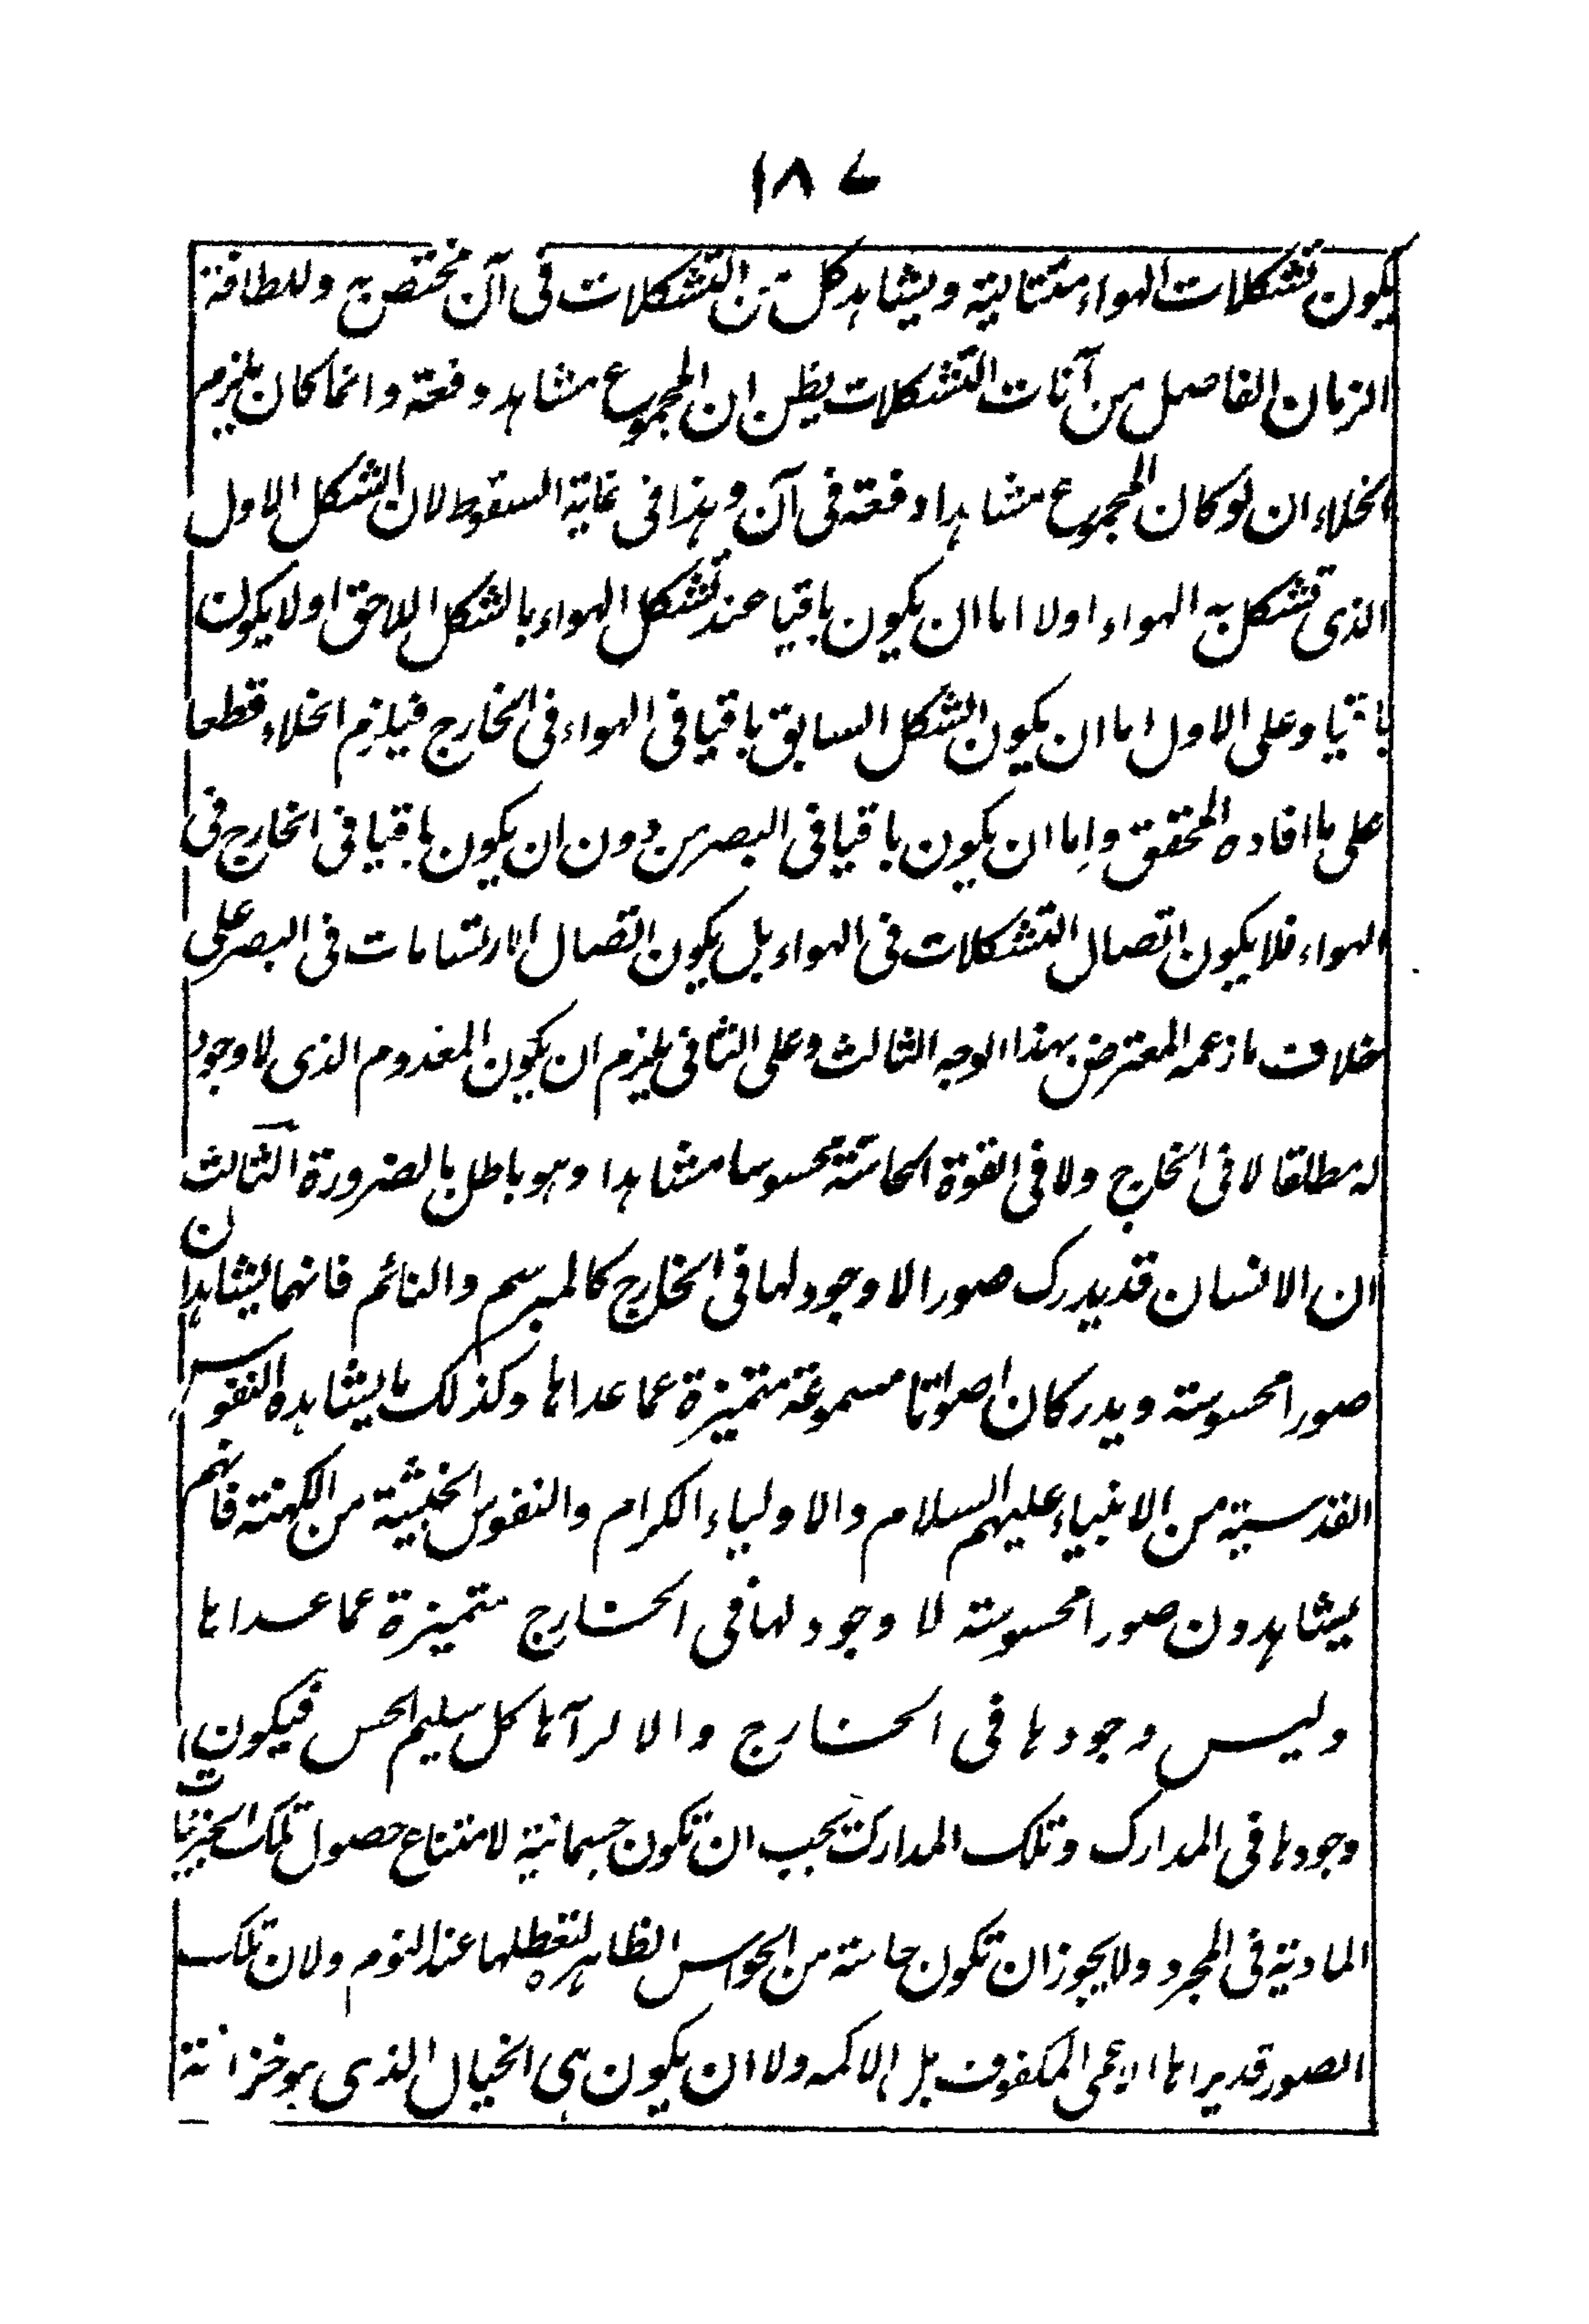 ١٨٤
يكون تشكلات الهواء متتالية ويشاهد كل من التشكلات فى آن مختص به وللطافة
الزمان الفاصل من آنات التشكلات يظن ان المجموع مشاهد دفعة وانما كان يلزم
الخلاء ان لو كان المجموع مشاهدا دفعة فى آن وهذا فى غاية السقوط لان الشكل الاول
الذى تشكل به الهواء اولا اما ان يكون باقيا عند تشكل الهواء بالشكل اللاحق او لا يكون
باقيا وعلى الاول اما ان يكون الشكل السابق باقيا فى الهواء فى الخارج فيلزم الخلاء قطعا
على ما افاده المحقق واما ان يكون باقيا فى البصر من دون ان يكون باقيا فى الخارج فى
الهواء فلا يكون اتصال التشكلات فى الهواء بل يكون اتصال الارتسامات فى البصر على
خلاف ما زعمه المعترض بهذا الوجه الثالث وعلى الثانى يلزم ان يكون المعدوم الذى لا وجود
له مطلقا لا فى الخارج ولا فى القوة الحاسة محسوسا مشاهدا وهو باطل بالضرورة الثالث
ان الانسان قد يدرك صورا لا وجود لها فى الخارج كالمبرسم والنائم فانهما يشاهدان
صورا محسوسة ويدركان اصواتا مسموعة متميزة عما عداها وكذلك ما يشاهده النفوس
القدسية من الانبياء عليهم السلام والاولياء الكرام والنفوس الخبيثة من الكهنة فانهم
يشاهدون صورا محسوسة لا وجود لها فى الخارج متميزة عما عداها
وليس وجودها فى الخارج والا لرآها كل سليم الحس فيكون
وجودها فى المدارك وتلك المدارك يجب ان تكون جسمانية لامتناع حصول تلك الجزئيات
المادية فى المجرد ولا يجوز ان تكون حاسة من الحواس الظاهرة لتعطلها عند النوم ولان تلك
الصور قد يراها الاعمى المكفوف بل الاكمه ولا ان يكون هى الخيال الذى هو خزانة